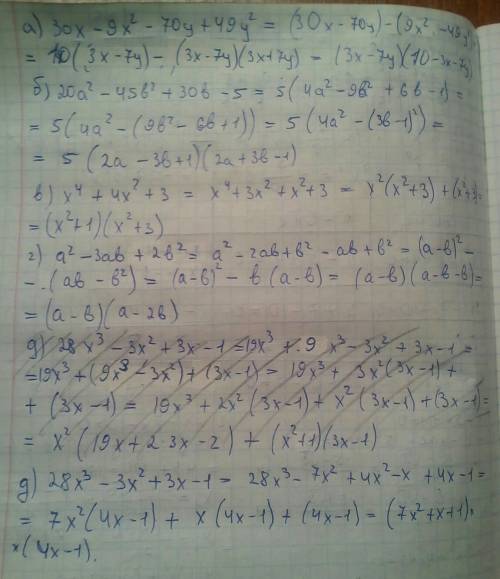 а) 30x - 9x² - 70y + 49y² = (30x - 70y) - (9x² - 49y²)
= 10(3x - 7y) - (3x - 7y)(3x + 7y) = (3x - 7y)(10 - 3x - 7y)
б) 20a² - 45b² + 30b - 5 = 5(4a² - 9b² + 6b - 1) =
= 5(4a² - (9b² - 6b + 1)) = 5(4a² - (3b - 1)²) =
= 5(2a - 3b + 1)(2a + 3b - 1)
в) x⁴ + 4x² + 3 = x⁴ + 3x² + x² + 3 = x²(x² + 3) + (x² + 3) =
= (x² + 1)(x² + 3)
г) a² - 3ab + 2b² = a² - 2ab + b² - ab + b² = (a - b)² -
- (ab - b²) = (a - b)² - b(a - b) = (a - b)(a - b - b) =
= (a - b)(a - 2b)
д) 28x³ - 3x² + 3x - 1 = 19x³ + 9x³ - 3x² + 3x - 1 =
= 19x³ + (9x³ - 3x²) + (3x - 1) = 19x³ + 3x²(3x - 1) +
+ (3x - 1) = 19x³ + 2x²(3x - 1) + x²(3x - 1) + (3x - 1) =
= x²(19x + 2 3x - 2) + (x² + 1)(3x - 1)
д) 28x³ - 3x² + 3x - 1 = 28x³ - 7x² + 4x² - x + 4x - 1 =
= 7x²(4x - 1) + x(4x - 1) + (4x - 1) = (7x² + x + 1)·
×(4x - 1).